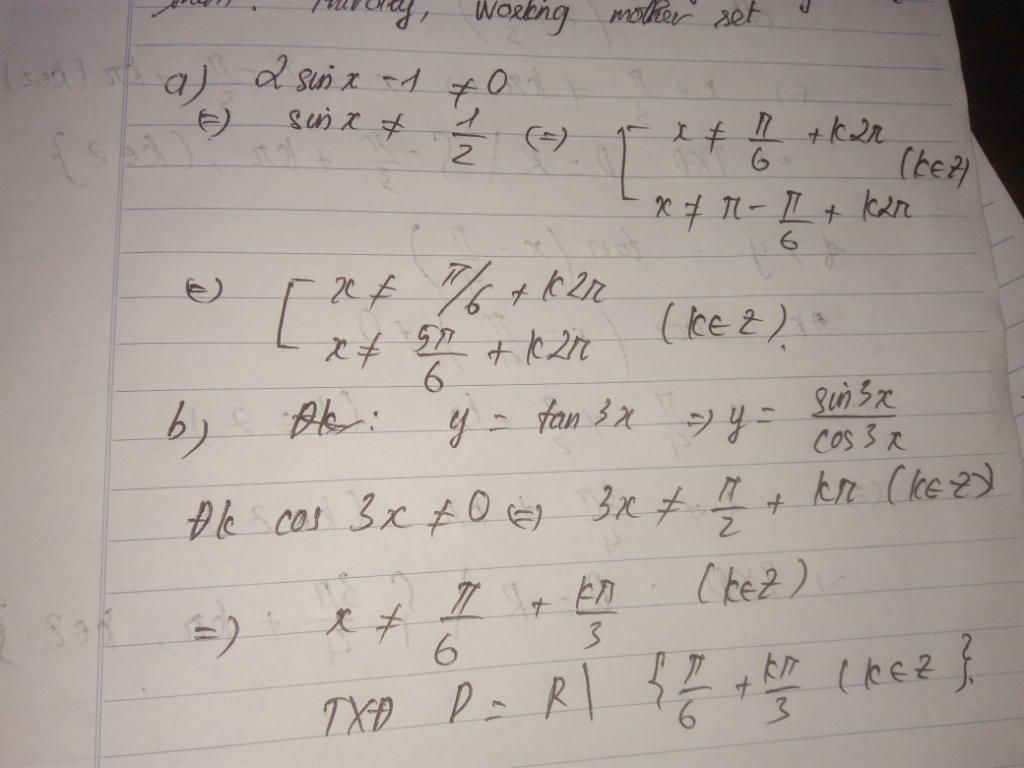 working mother set
a) 2 sin x - 1 ≠ 0
⇔ sin x ≠ 1/2 ⇔ [ x ≠ π/6 + k2π
x ≠ π - π/6 + k2π (k∈Z)
⇔ [ x ≠ π/6 + k2π
x ≠ 5π/6 + k2π (k∈Z).
b) Đk: y = tan 3x ⇒ y = sin 3x / cos 3x
Đk cos 3x ≠ 0 ⇔ 3x ≠ π/2 + kπ (k∈Z)
⇒ x ≠ π/6 + kπ/3 (k∈Z)
TXĐ D = R \ { π/6 + kπ/3 (k∈Z }.